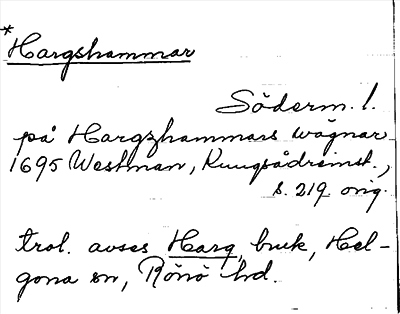 *Hargshammar
Söderm. l.
på Hargzhammars wägnar
1695 Westman, Kungsådreinst.,
s. 219 orig.
trol. avses Harg, bruk, Hel-
gona sn, Rönö hd.